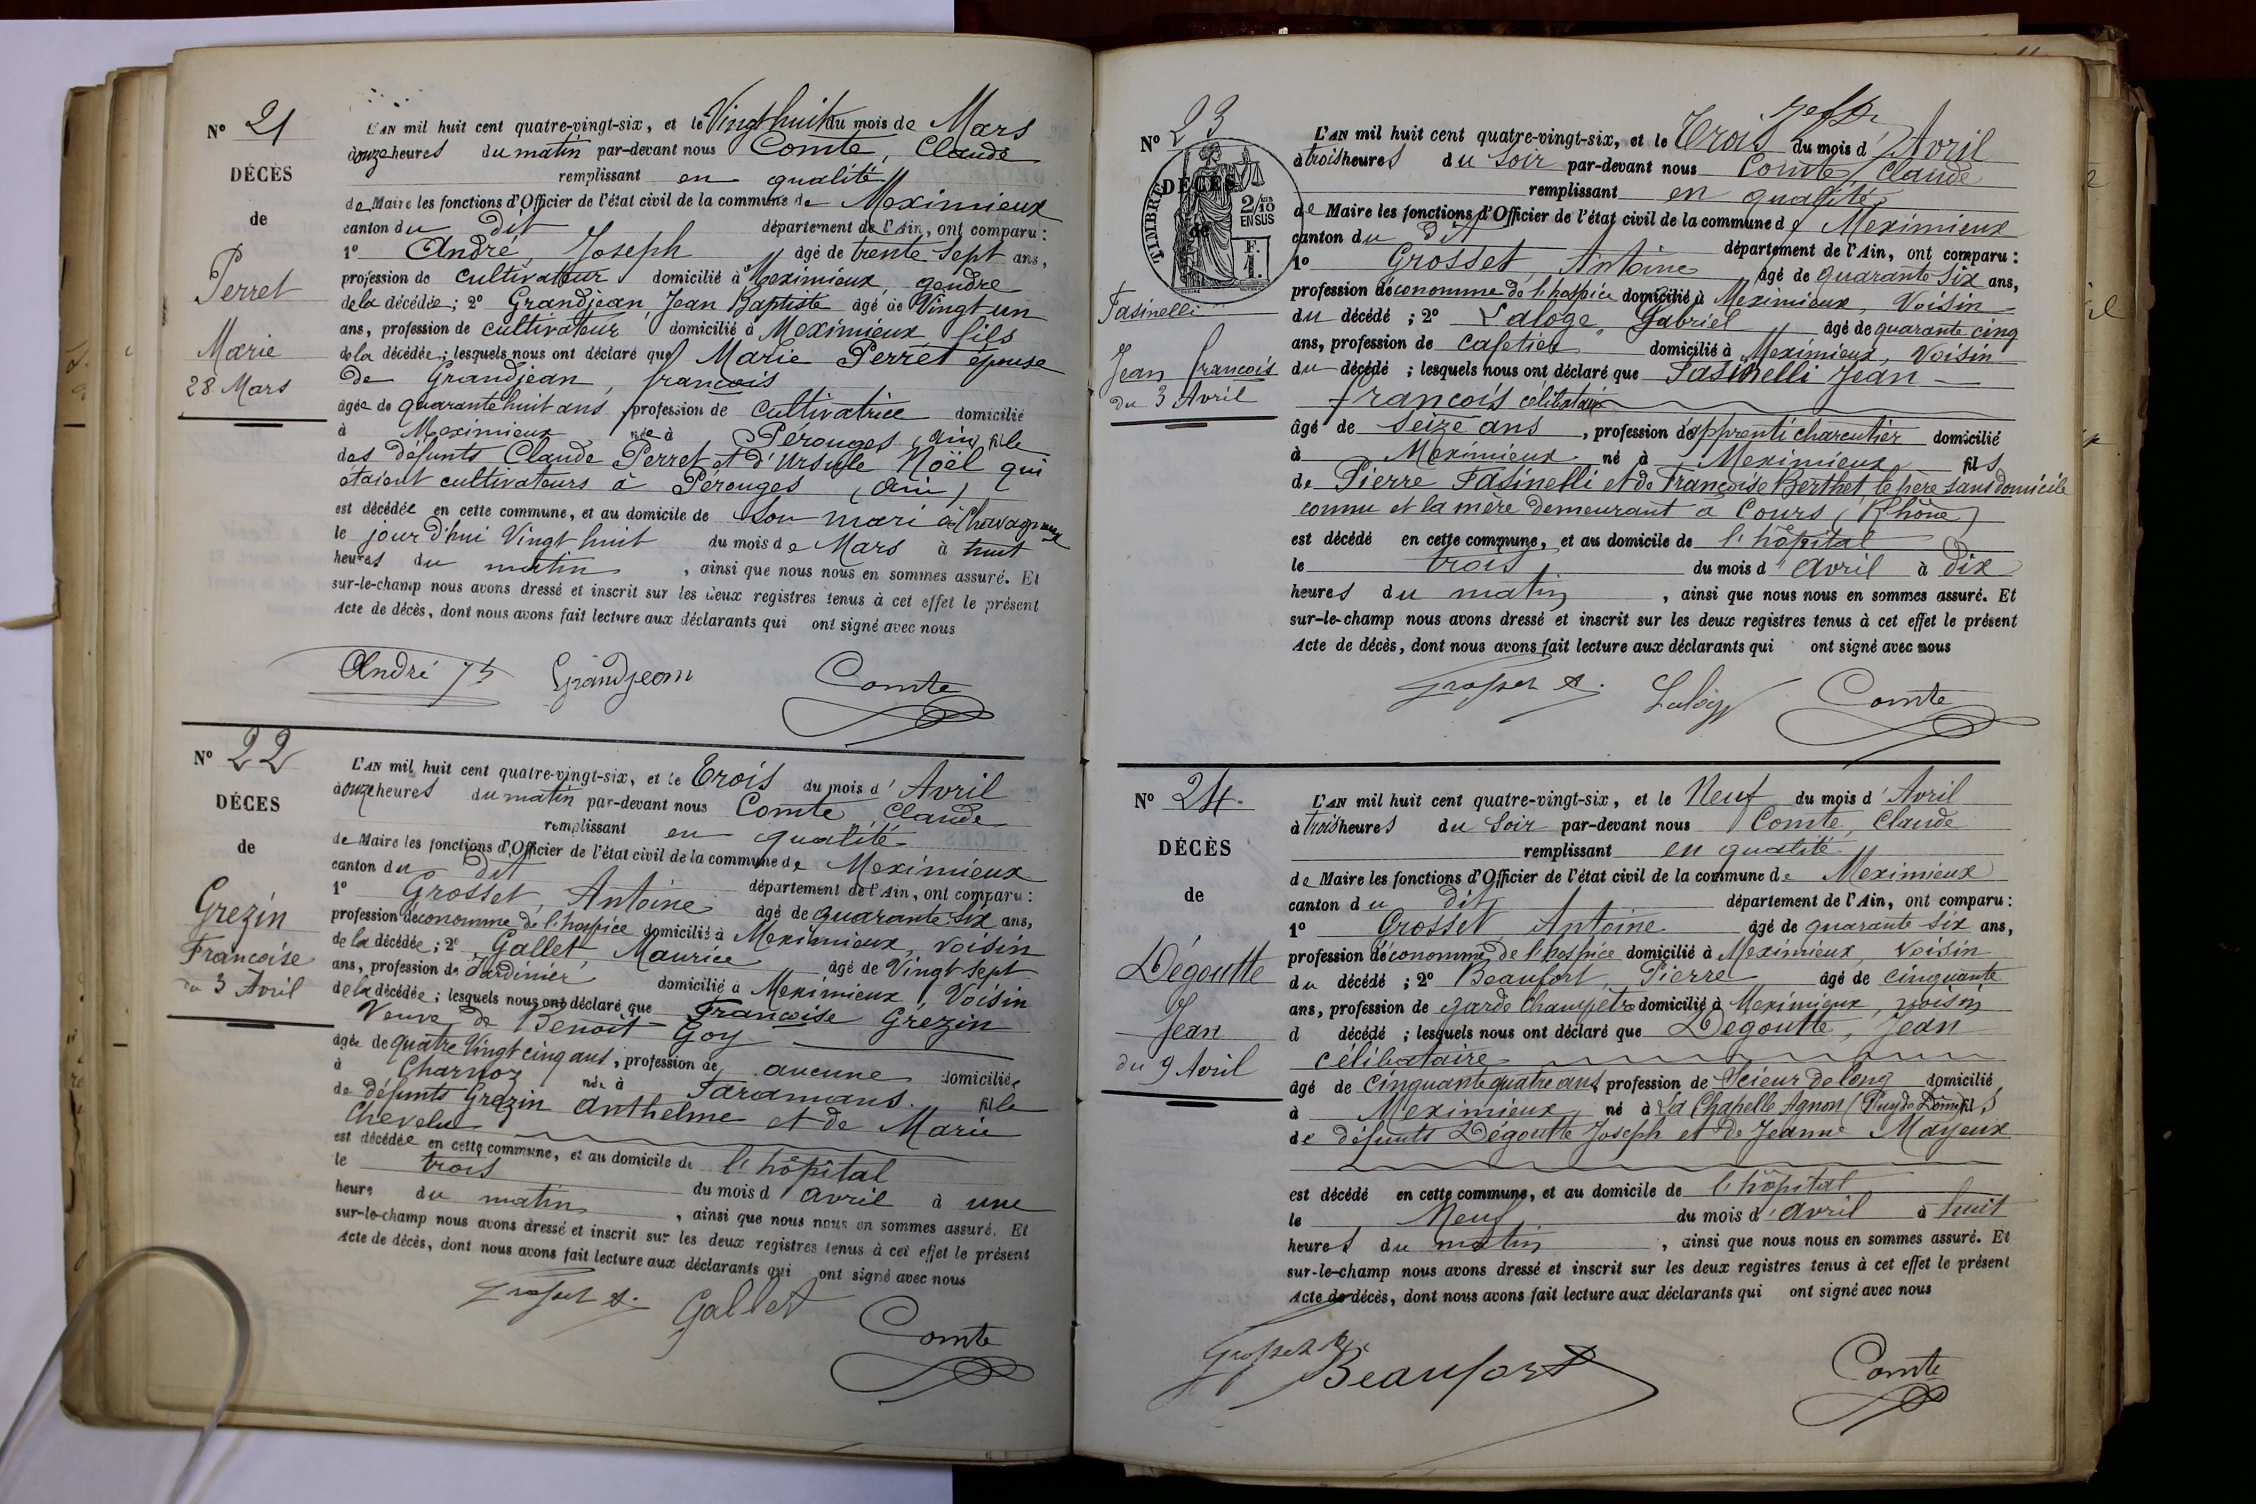 N° 21
DÉCÈS
de
Perret
Marie
28 Mars
L'AN mil huit cent quatre-vingt-six, et le Vingt huit du mois de Mars
à onze heures du matin par-devant nous Comte, Claude
remplissant en qualité
de Maire les fonctions d'Officier de l'état civil de la commune de Meximieux
canton du dit département de l'Ain, ont comparu :
1° André, Joseph âgé de trente Sept ans,
profession de cultivateur domicilié à Meximieux, gendre
de la décédée ; 2° Grandjean, Jean Baptiste âgé de Vingt un
ans, profession de cultivateur domicilié à Meximieux fils
de la décédée ; lesquels nous ont déclaré que Marie Perret épouse
de Grandjean, francois
âgée de quarante huit ans, profession de cultivatrice domicilié
à Meximieux née à Pérouges (ain) fille
des défunts Claude Perret et d'Ursule Noël qui
étaient cultivateurs à Pérouges (ain)
est décédée en cette commune, et au domicile de son mari à Chavagneux
le jour d'hui Vingt huit du mois de Mars à huit
heures du matin, ainsi que nous nous en sommes assuré. Et
sur-le-champ nous avons dressé et inscrit sur les deux registres tenus à cet effet le présent
Acte de décès, dont nous avons fait lecture aux déclarants qui ont signé avec nous
André Jh Grandjean Comte
N° 22
DÉCES
de
Grezin
Francoise
du 3 Avril
L'AN mil huit cent quatre-vingt-six, et le Trois du mois d'Avril
à onze heures du matin par-devant nous Comte, Claude
remplissant en qualité
de Maire les fonctions d'Officier de l'état civil de la commune de Meximieux
canton du dit département de l'Ain, ont comparu :
1° Grosset, Antoine âgé de quarante six ans,
profession d'économme de l'hospice domicilié à Meximieux, voisin
de la décédée ; 2° Gallet, Maurice âgé de Vingt sept
ans, profession de Jardinier domicilié à Meximieux, Voisin
de la décédée ; lesquels nous ont déclaré que Françoise Grezin
Veuve de Benoit Goy
âgée de quatre Vingt cinq ans, profession de aucune domiciliée
à Charnoz née à Faramans fille
de défunts Grezin Anthelme et de Marie
Chevelu
est décédée en cette commune, et au domicile de l'hôpital
le trois du mois d'avril à une
heure du matin, ainsi que nous nous en sommes assuré. Et
sur-le-champ nous avons dressé et inscrit sur les deux registres tenus à cet effet le présent
Acte de décès, dont nous avons fait lecture aux déclarants qui ont signé avec nous
Grosset A. Gallet Comte
N° 23
DÉCÈS
de
TIMBRE
2/10 EN SUS
F. 1.
Fasinelli
Jean francois
du 3 Avril
L'AN mil huit cent quatre-vingt-six, et le Trois du mois d'Avril
à trois heures du soir par-devant nous Comte, Claude
remplissant en qualité
de Maire les fonctions d'Officier de l'état civil de la commune de Meximieux
canton du dit département de l'Ain, ont comparu :
1° Grosset, Antoine âgé de quarante six ans,
profession d'économme de l'hospice domicilié à Meximieux, Voisin
du décédé ; 2° Laloge Gabriel âgé de quarante cinq
ans, profession de cafetier domicilié à Meximieux, Voisin
du décédé ; lesquels nous ont déclaré que Fasinelli Jean
françois célibataire
âgé de seize ans, profession d'apprenti charcutier domicilié
à Meximieux né à Meximieux fils
de Pierre Fasinelli et de Françoise Berthet, le père sans domicile
connu et la mère demeurant à Cours (Rhône)
est décédé en cette commune, et au domicile de l'hôpital
le trois du mois d'avril à dix
heures du matin, ainsi que nous nous en sommes assuré. Et
sur-le-champ nous avons dressé et inscrit sur les deux registres tenus à cet effet le présent
Acte de décès, dont nous avons fait lecture aux déclarants qui ont signé avec nous
Grosset A. Laloge Comte
N° 24.
DÉCÈS
de
Dégoutte
Jean
du 9 Avril
L'AN mil huit cent quatre-vingt-six, et le Neuf du mois d'Avril
à trois heures du Soir par-devant nous Comte, Claude
remplissant en qualité
de Maire les fonctions d'Officier de l'état civil de la commune de Meximieux
canton du dit département de l'Ain, ont comparu :
1° Grosset, Antoine âgé de quarante six ans,
profession d'économme de l'hospice domicilié à Meximieux, voisin
du décédé ; 2° Beaufort, Pierre âgé de cinquante
ans, profession de garde Champêtre domicilié à Meximieux, voisin
d décédé ; lesquels nous ont déclaré que Dégoutte, Jean
célibataire
âgé de cinquante quatre ans profession de Scieur de long domicilié
à Meximieux, né à La Chapelle Agnon (Puy de Dôme) fils
de défunts Dégoutte Joseph et de Jeanne Mayeux
est décédé en cette commune, et au domicile de l'hôpital
le Neuf du mois d'avril à huit
heures du matin, ainsi que nous nous en sommes assuré. Et
sur-le-champ nous avons dressé et inscrit sur les deux registres tenus à cet effet le présent
Acte de décès, dont nous avons fait lecture aux déclarants qui ont signé avec nous
Grosset A. Beaufort Comte